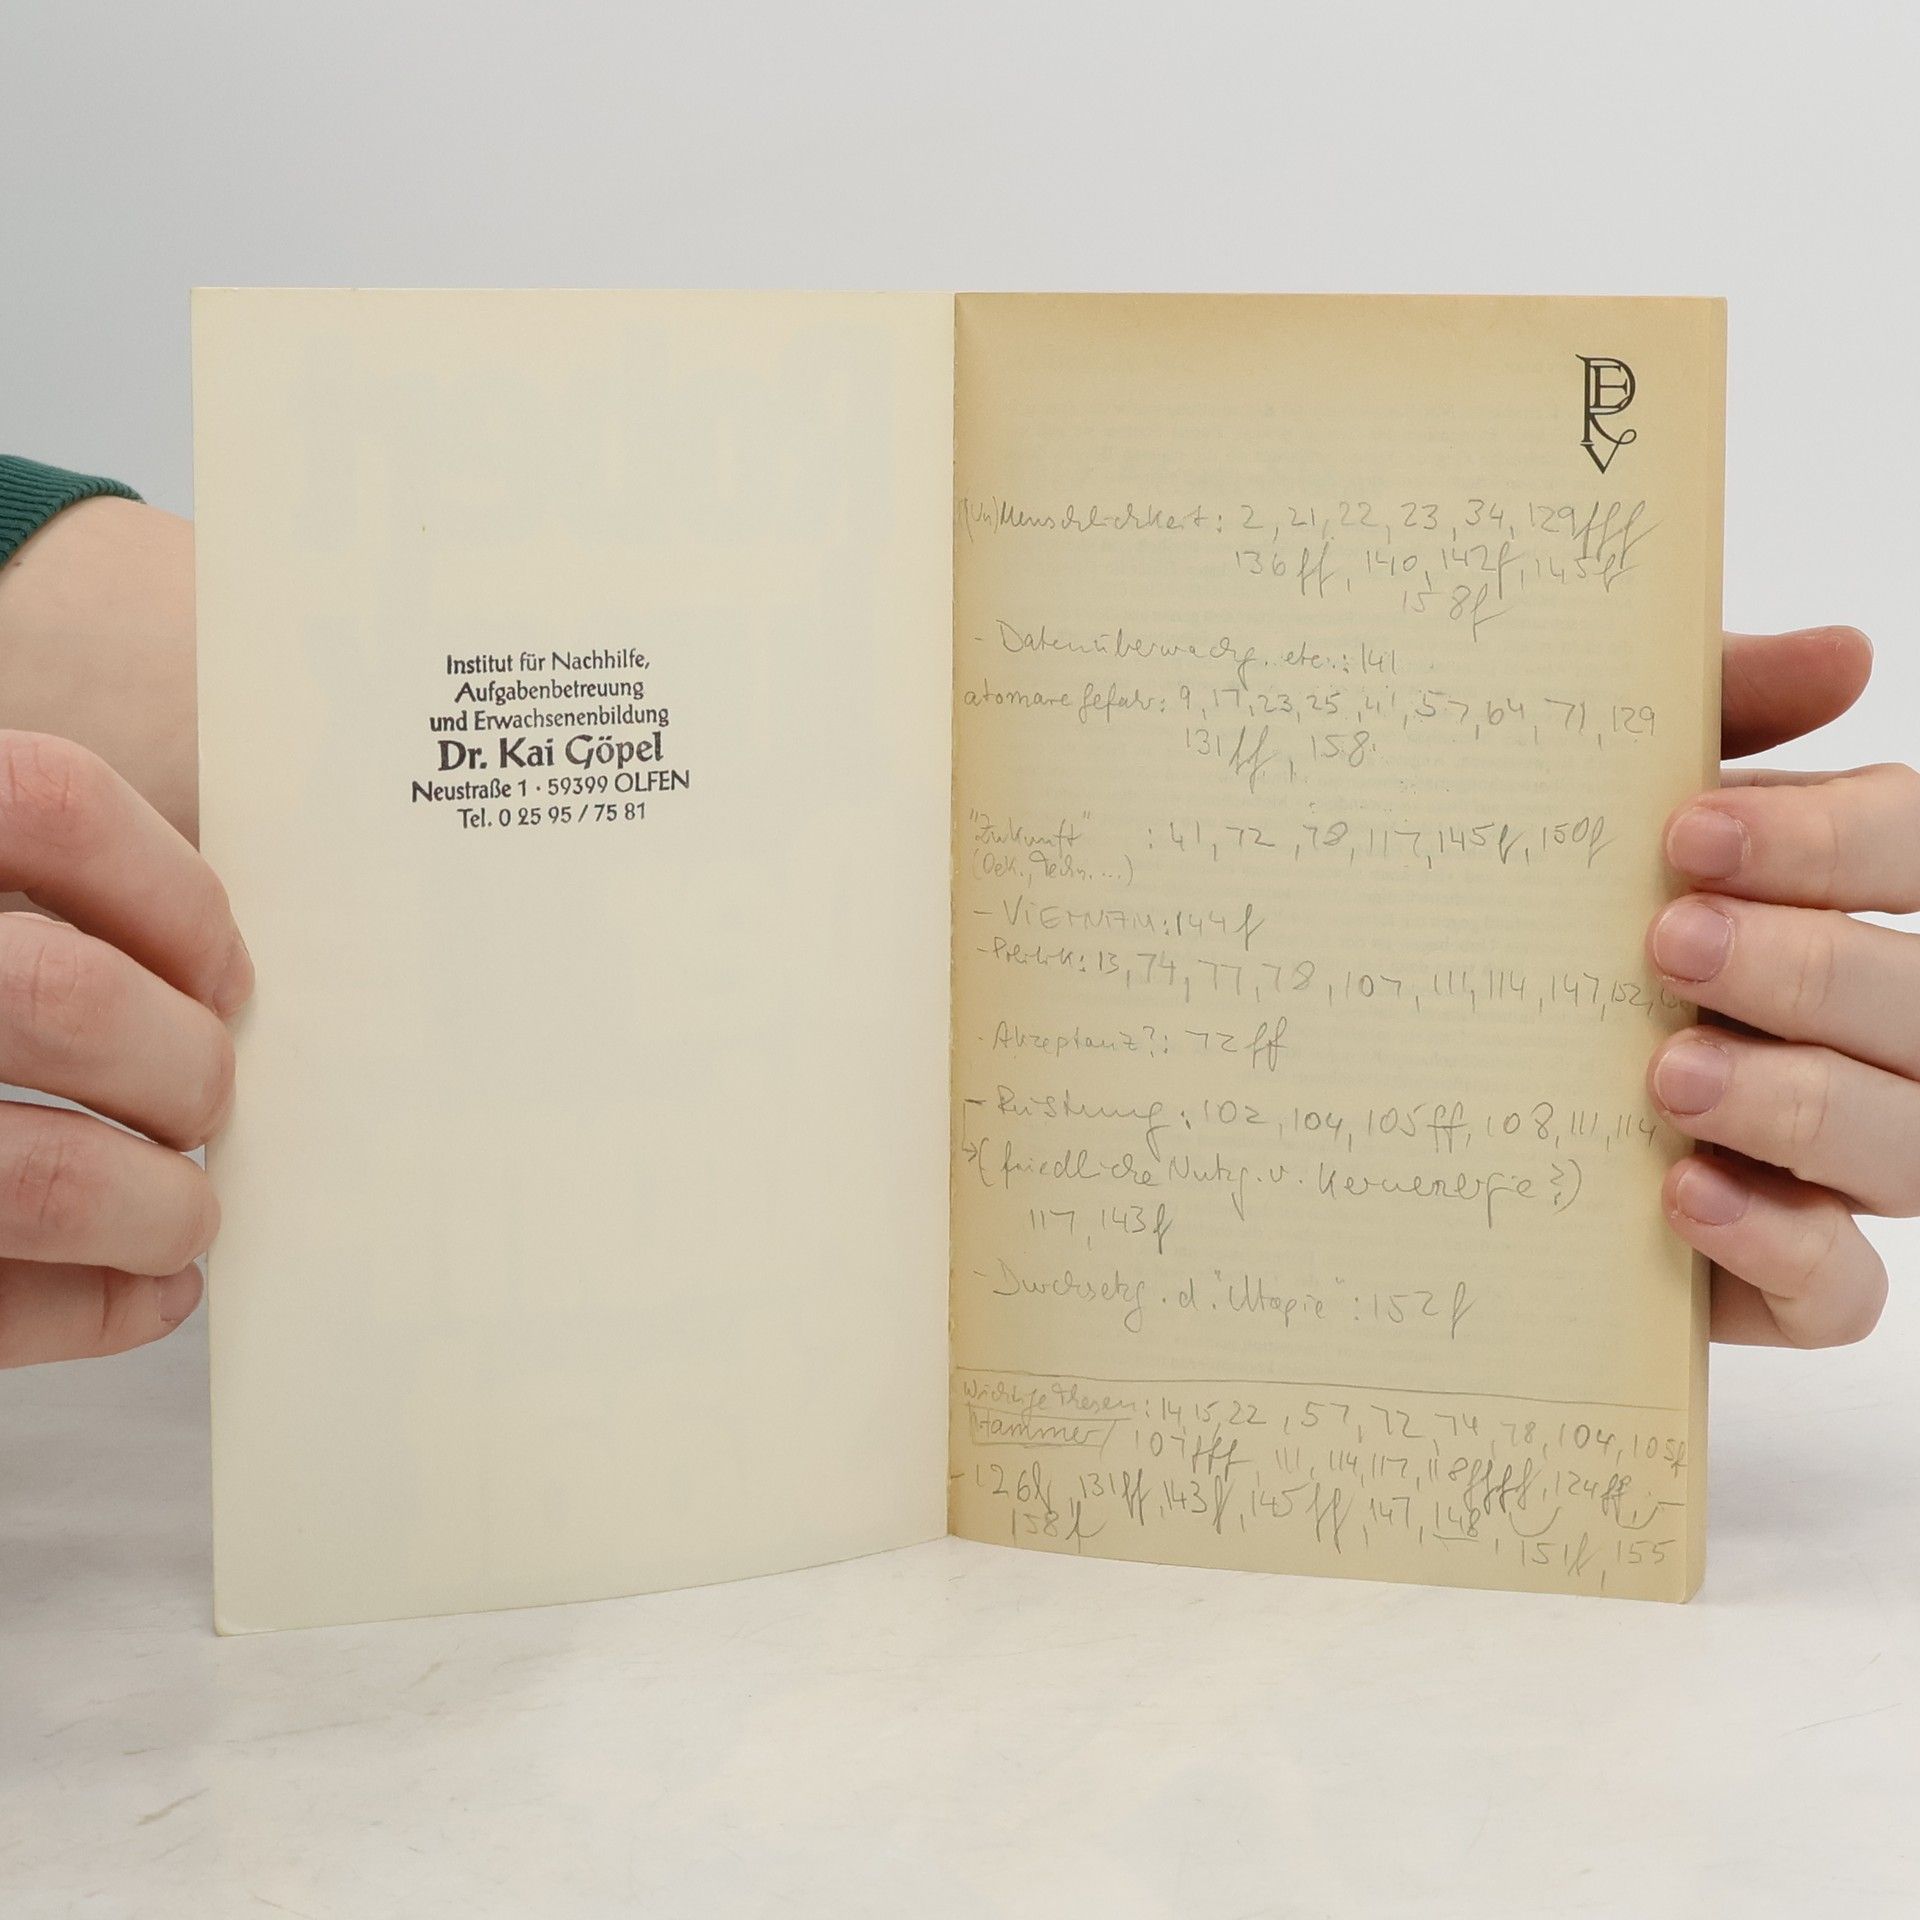 Institut für Nachhilfe,
Aufgabenbetreuung
und Erwachsenenbildung
Dr. Kai Göpel
Neustraße 1 · 59399 OLFEN
Tel. 0 25 95 / 75 81
(Un)Menschlichkeit: 2, 21, 22, 23, 34, 129fff
136ff, 140, 142f, 145f
158f
- Datenüberwachg. etc.: 141
atomare Gefahr: 9, 17, 23, 25, 41, 57, 64, 71, 129
131ff, 158
"Zukunft" : 41, 72, 78, 117, 145f, 150f
(Oek., Techn. ...)
- VIETNAM: 144f
- Politik: 13, 74, 77, 78, 107, 111, 114, 147, 152,
- Akzeptanz?: 72ff
- Rüstung: 102, 104, 105ff, 108, 111, 114
→ (friedliche Nutzg. v. Kernenergie?)
117, 143f
- Durchsetzg. d. "Utopie": 152f
Wichtige Thesen: 14, 15, 22, 57, 72, 74, 78, 104, 105f
Hammer 107fff, 111, 114, 117, 118ffff, 124ff,
- 126f, 131ff, 143f, 145ff, 147, 148, 151f, 155
158f